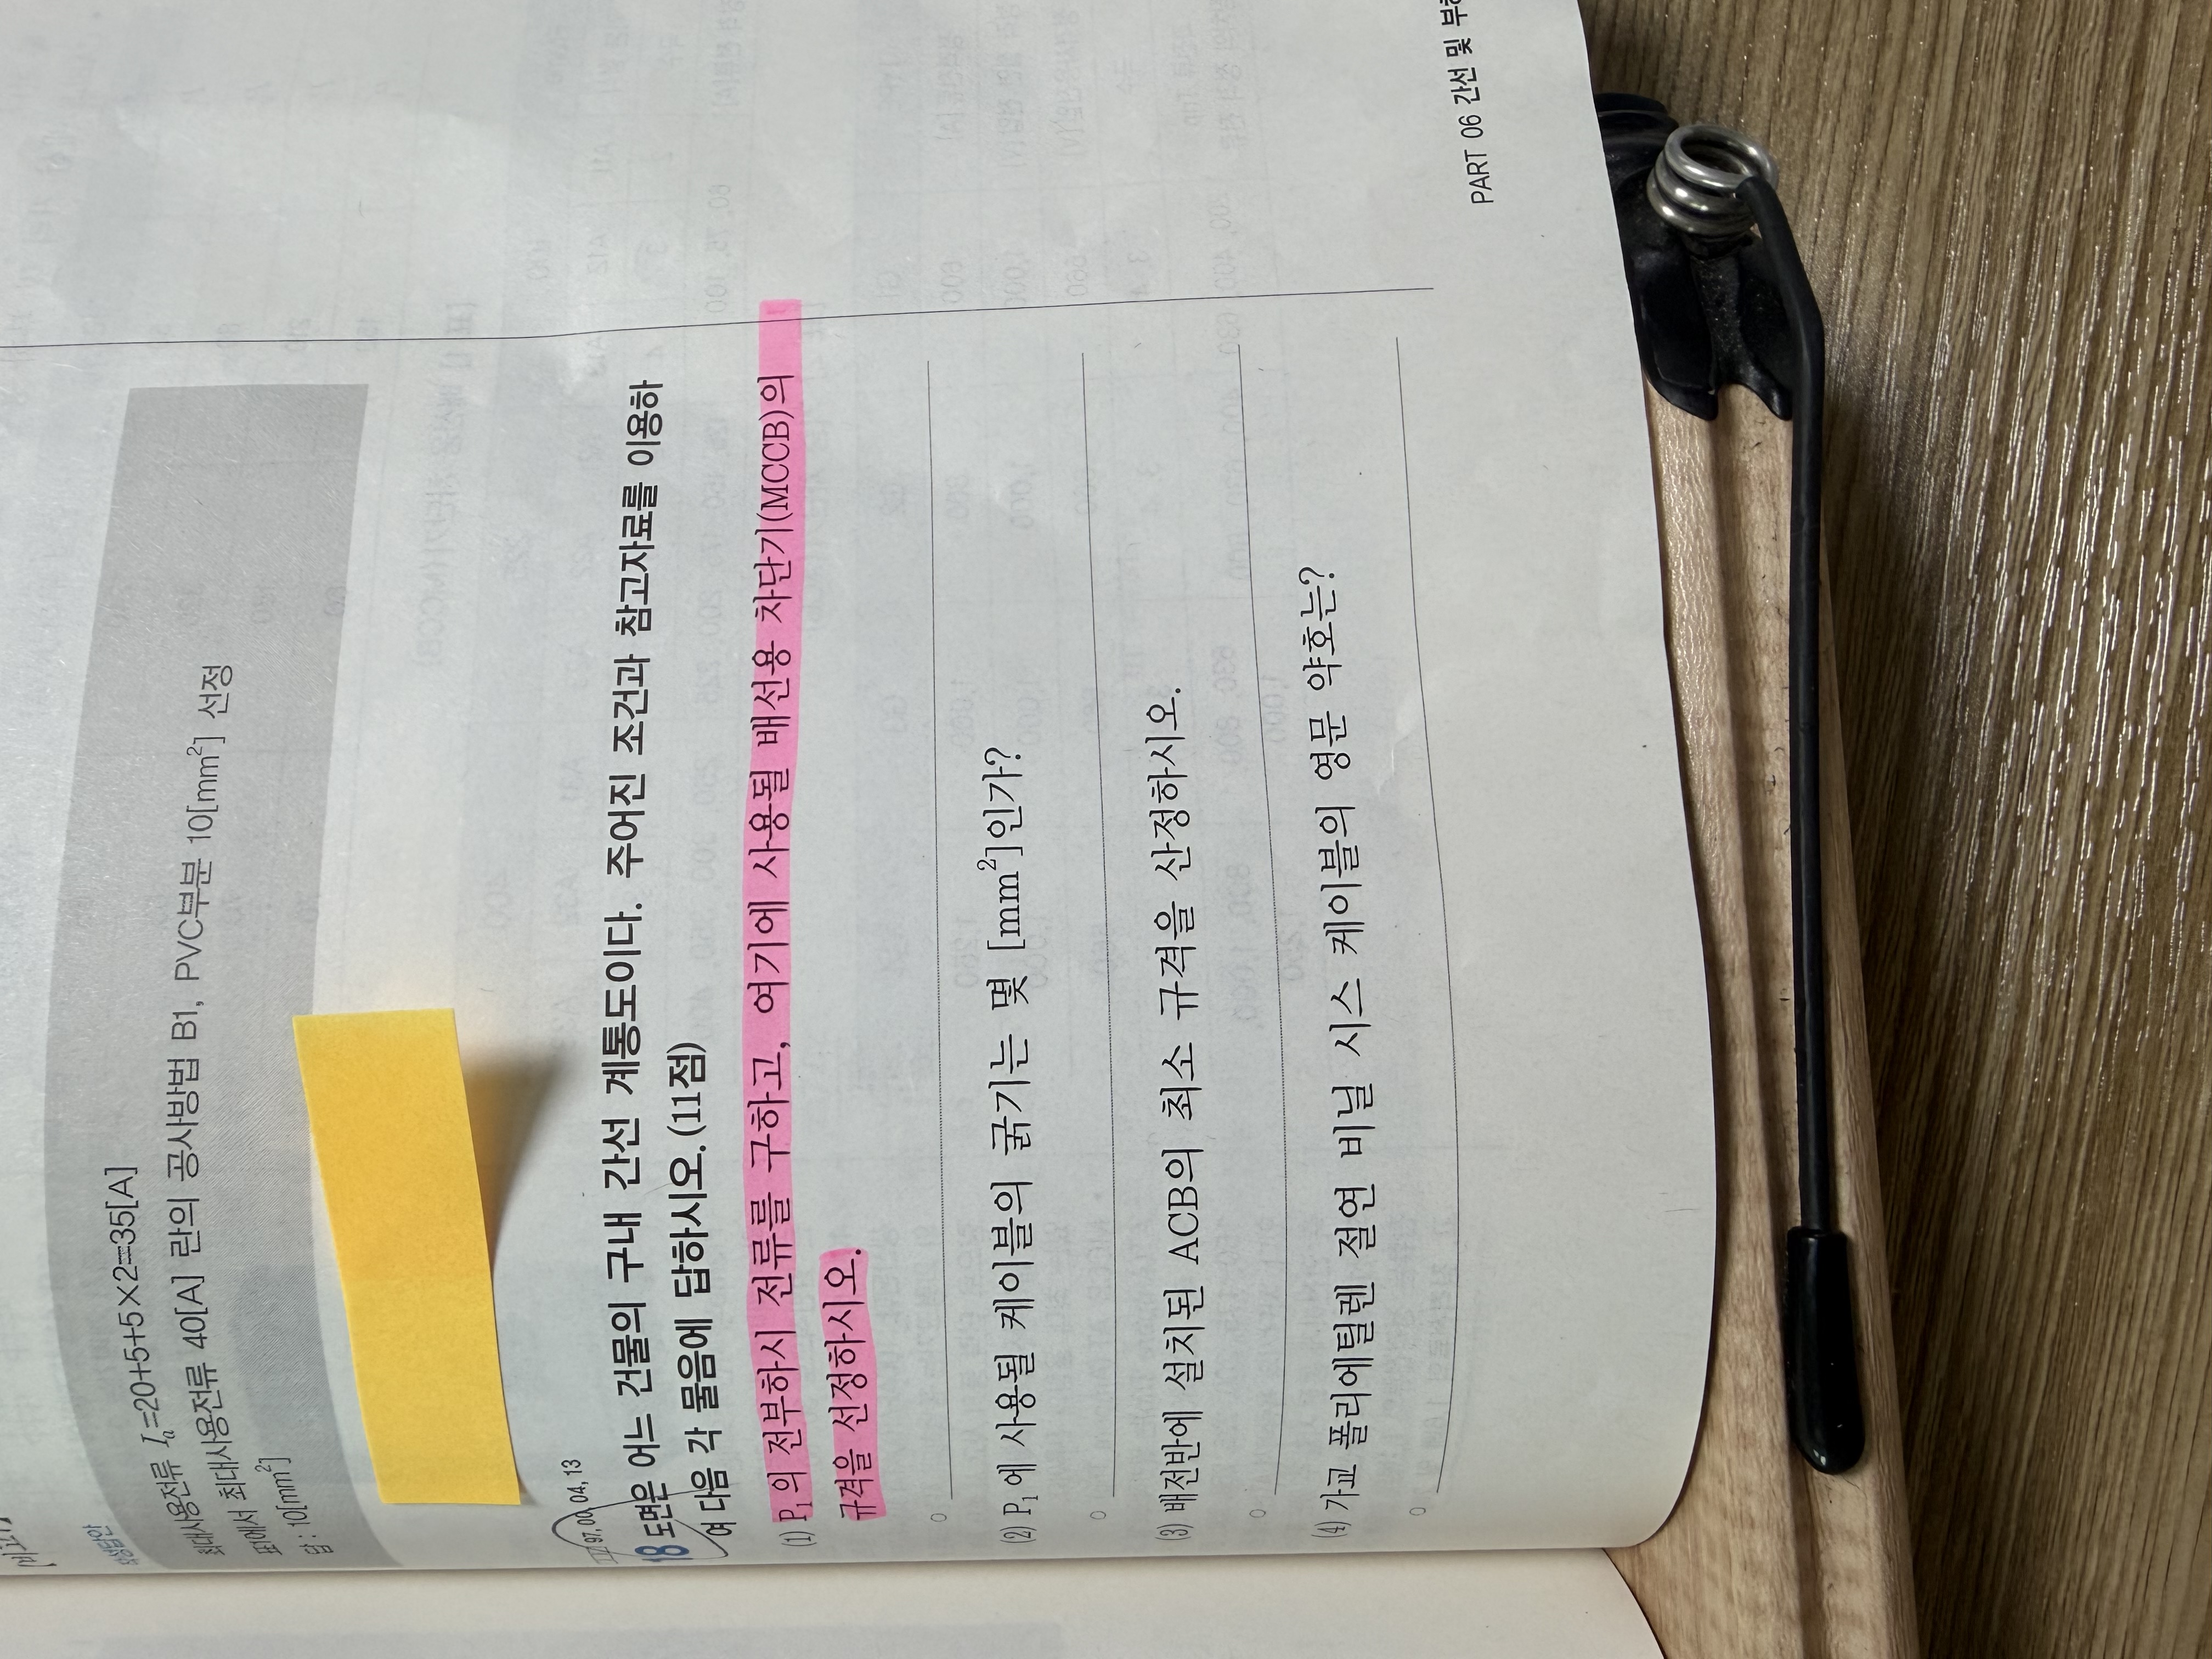 최대사용전류 Ia=20+5+5×2=35[A]
표에서 최대사용전류 40[A] 란의 공사방법 B1, PVC부분 10[mm²] 선정
답 : 10[mm²]
97, 00, 04, 13
18 도면은 어느 건물의 구내 간선 계통도이다. 주어진 조건과 참고자료를 이용하
여 다음 각 물음에 답하시오.(11점)
(1) P₁의 전부하시 전류를 구하고, 여기에 사용될 배선용 차단기(MCCB)의
규격을 선정하시오.
(2) P₁에 사용될 케이블의 굵기는 몇 [mm²]인가?
(3) 배전반에 설치된 ACB의 최소 규격을 산정하시오.
(4) 가교 폴리에틸렌 절연 비닐 시스 케이블의 영문 약호는?
PART 06 간선 및